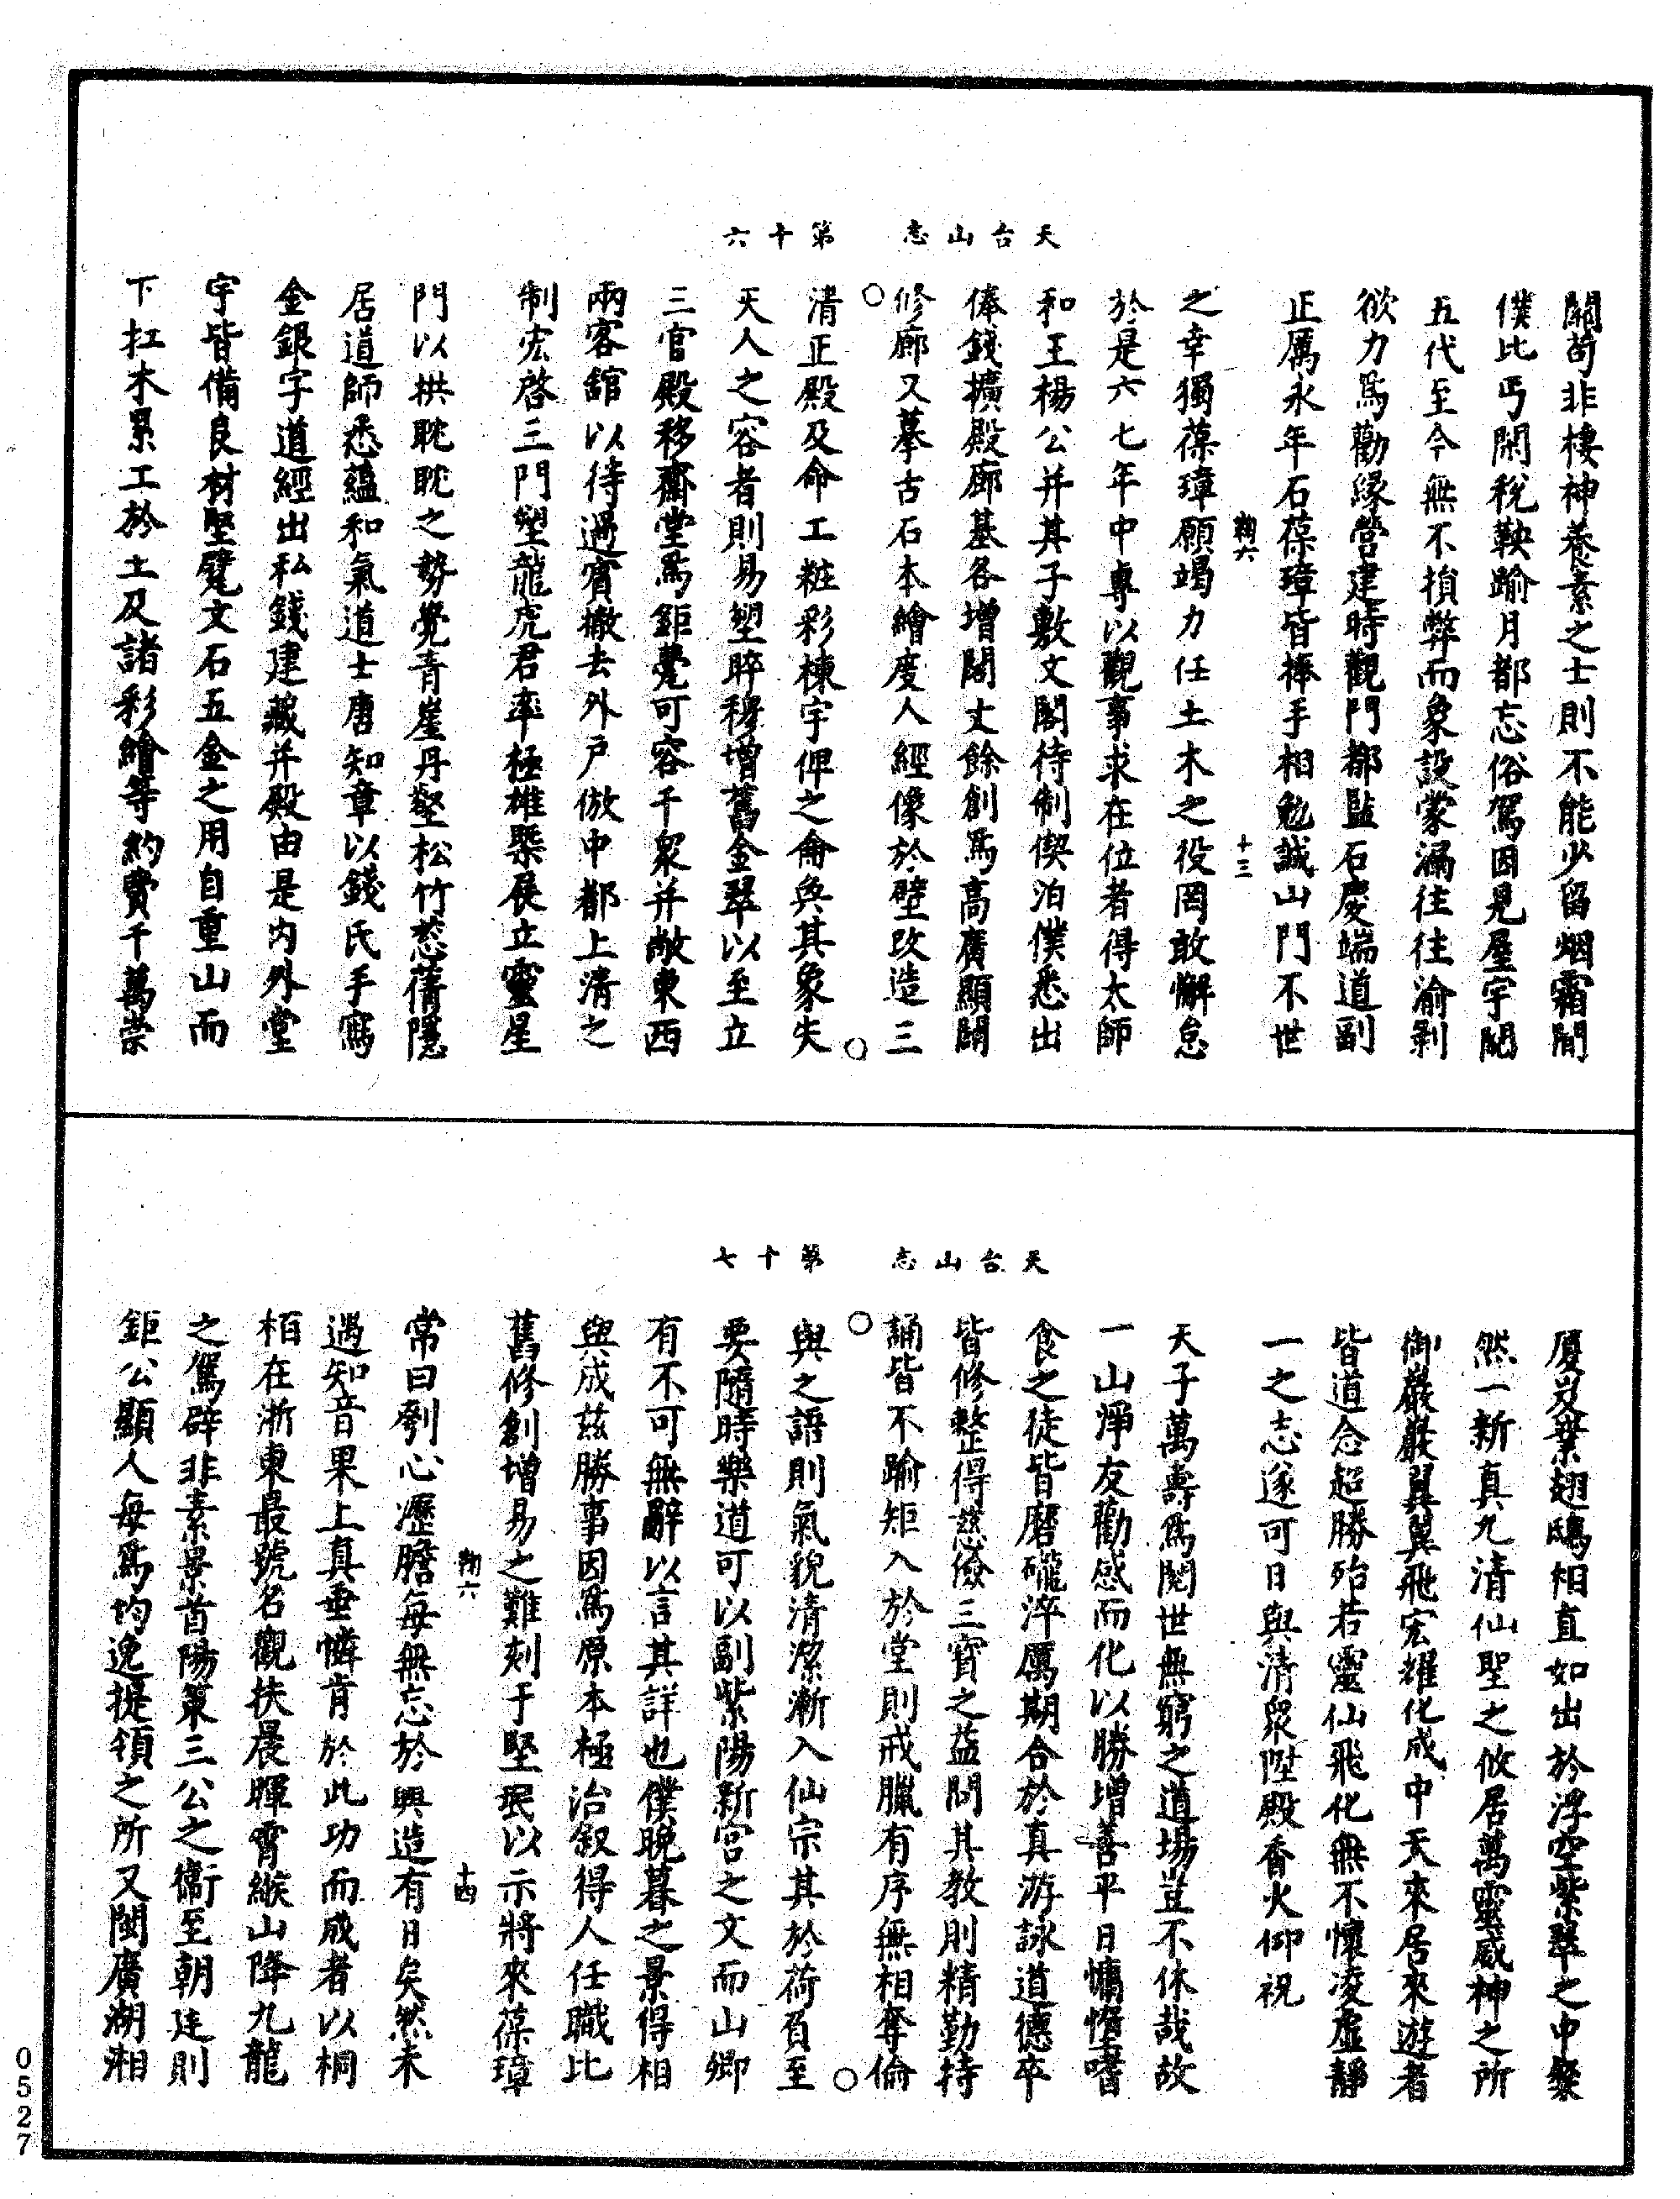 天台山志　第十六
闕茍非棲神養素之士則不能少留烟霜間
僕比丐閑稅鞅踰月都忘俗駕因見屋宇闕
五代至今無不損弊而象設蒙漏往往渝剝
欲力為勸緣營建時觀門都監石慶端道副
正厲永年石葆璋皆捧手相勉誠山門不世
之幸獨葆璋願竭力任土木之役罔敢懈怠
鞠六　十三
於是六七年中專以觀事求在位者得太師
和王楊公并其子敷文閣待制偰洎僕悉出
俸錢擴殿廊基各增闊丈餘創為高廣顯闢
修廊又摹古石本繪度人經像於壁改造三
清正殿及命工粧彩棟宇俾之侖奐其象失
天人之容者則易塑睟穆增舊金翠以至立
三官殿移齋堂為鉅甍可容千眾并敞東西
兩客舘以待過賓撤去外戶倣中都上清之
制宏啓三門塑龍虎君率極雄槩展立靈星
門以拱眈眈之勢覺青崖丹壑松竹葱蒨隱
居道師悉蘊和氣道士唐知章以錢氏手寫
金銀字道經出私錢建藏并殿由是內外堂
宇皆備良材堅甓文石五金之用自重山而
下扛木累工於土及諸彩繪等約費千萬崇
天台山志　第十七
厦岌𦱤翅鴟相直如出於浮空紫翠之中粲
然一新真九清仙聖之攸居萬靈威神之所
御巖巖翼翼飛宏耀化成中天來居來遊者
皆道念超勝殆若靈仙飛化無不懷凌虛靜
一之志遂可日與清眾陞殿香火仰祝
天子萬壽為閱世無窮之道場豈不休哉故
一山淨友勸感而化以勝增善平日慵惰嗜
食之徒皆磨礲淬厲期合於真游詠道德卒
皆修整得慈儉三寶之益問其教則精勤特
誦皆不踰矩入於堂則戒臘有序無相奪倫
與之語則氣貌清潔漸入仙宗其於荷負至
要隨時樂道可以副紫陽新宮之文而山鄉
有不可無辭以言其詳也僕晚暮之景得相
與成茲勝事因為原本極治叙得人任職比
舊修創增易之難刻于堅珉以示將來葆璋
鞠六　十四
常曰刳心瀝膽每無忘於興造有日矣然未
遇知音果上真垂憐肯於此功而成者以桐
栢在浙東最號名觀扶晨暉霄緱山降九龍
之駕辟非素景首陽策三公之衞至朝廷則
鉅公顯人每為均逸提領之所又閩廣湖湘
0527